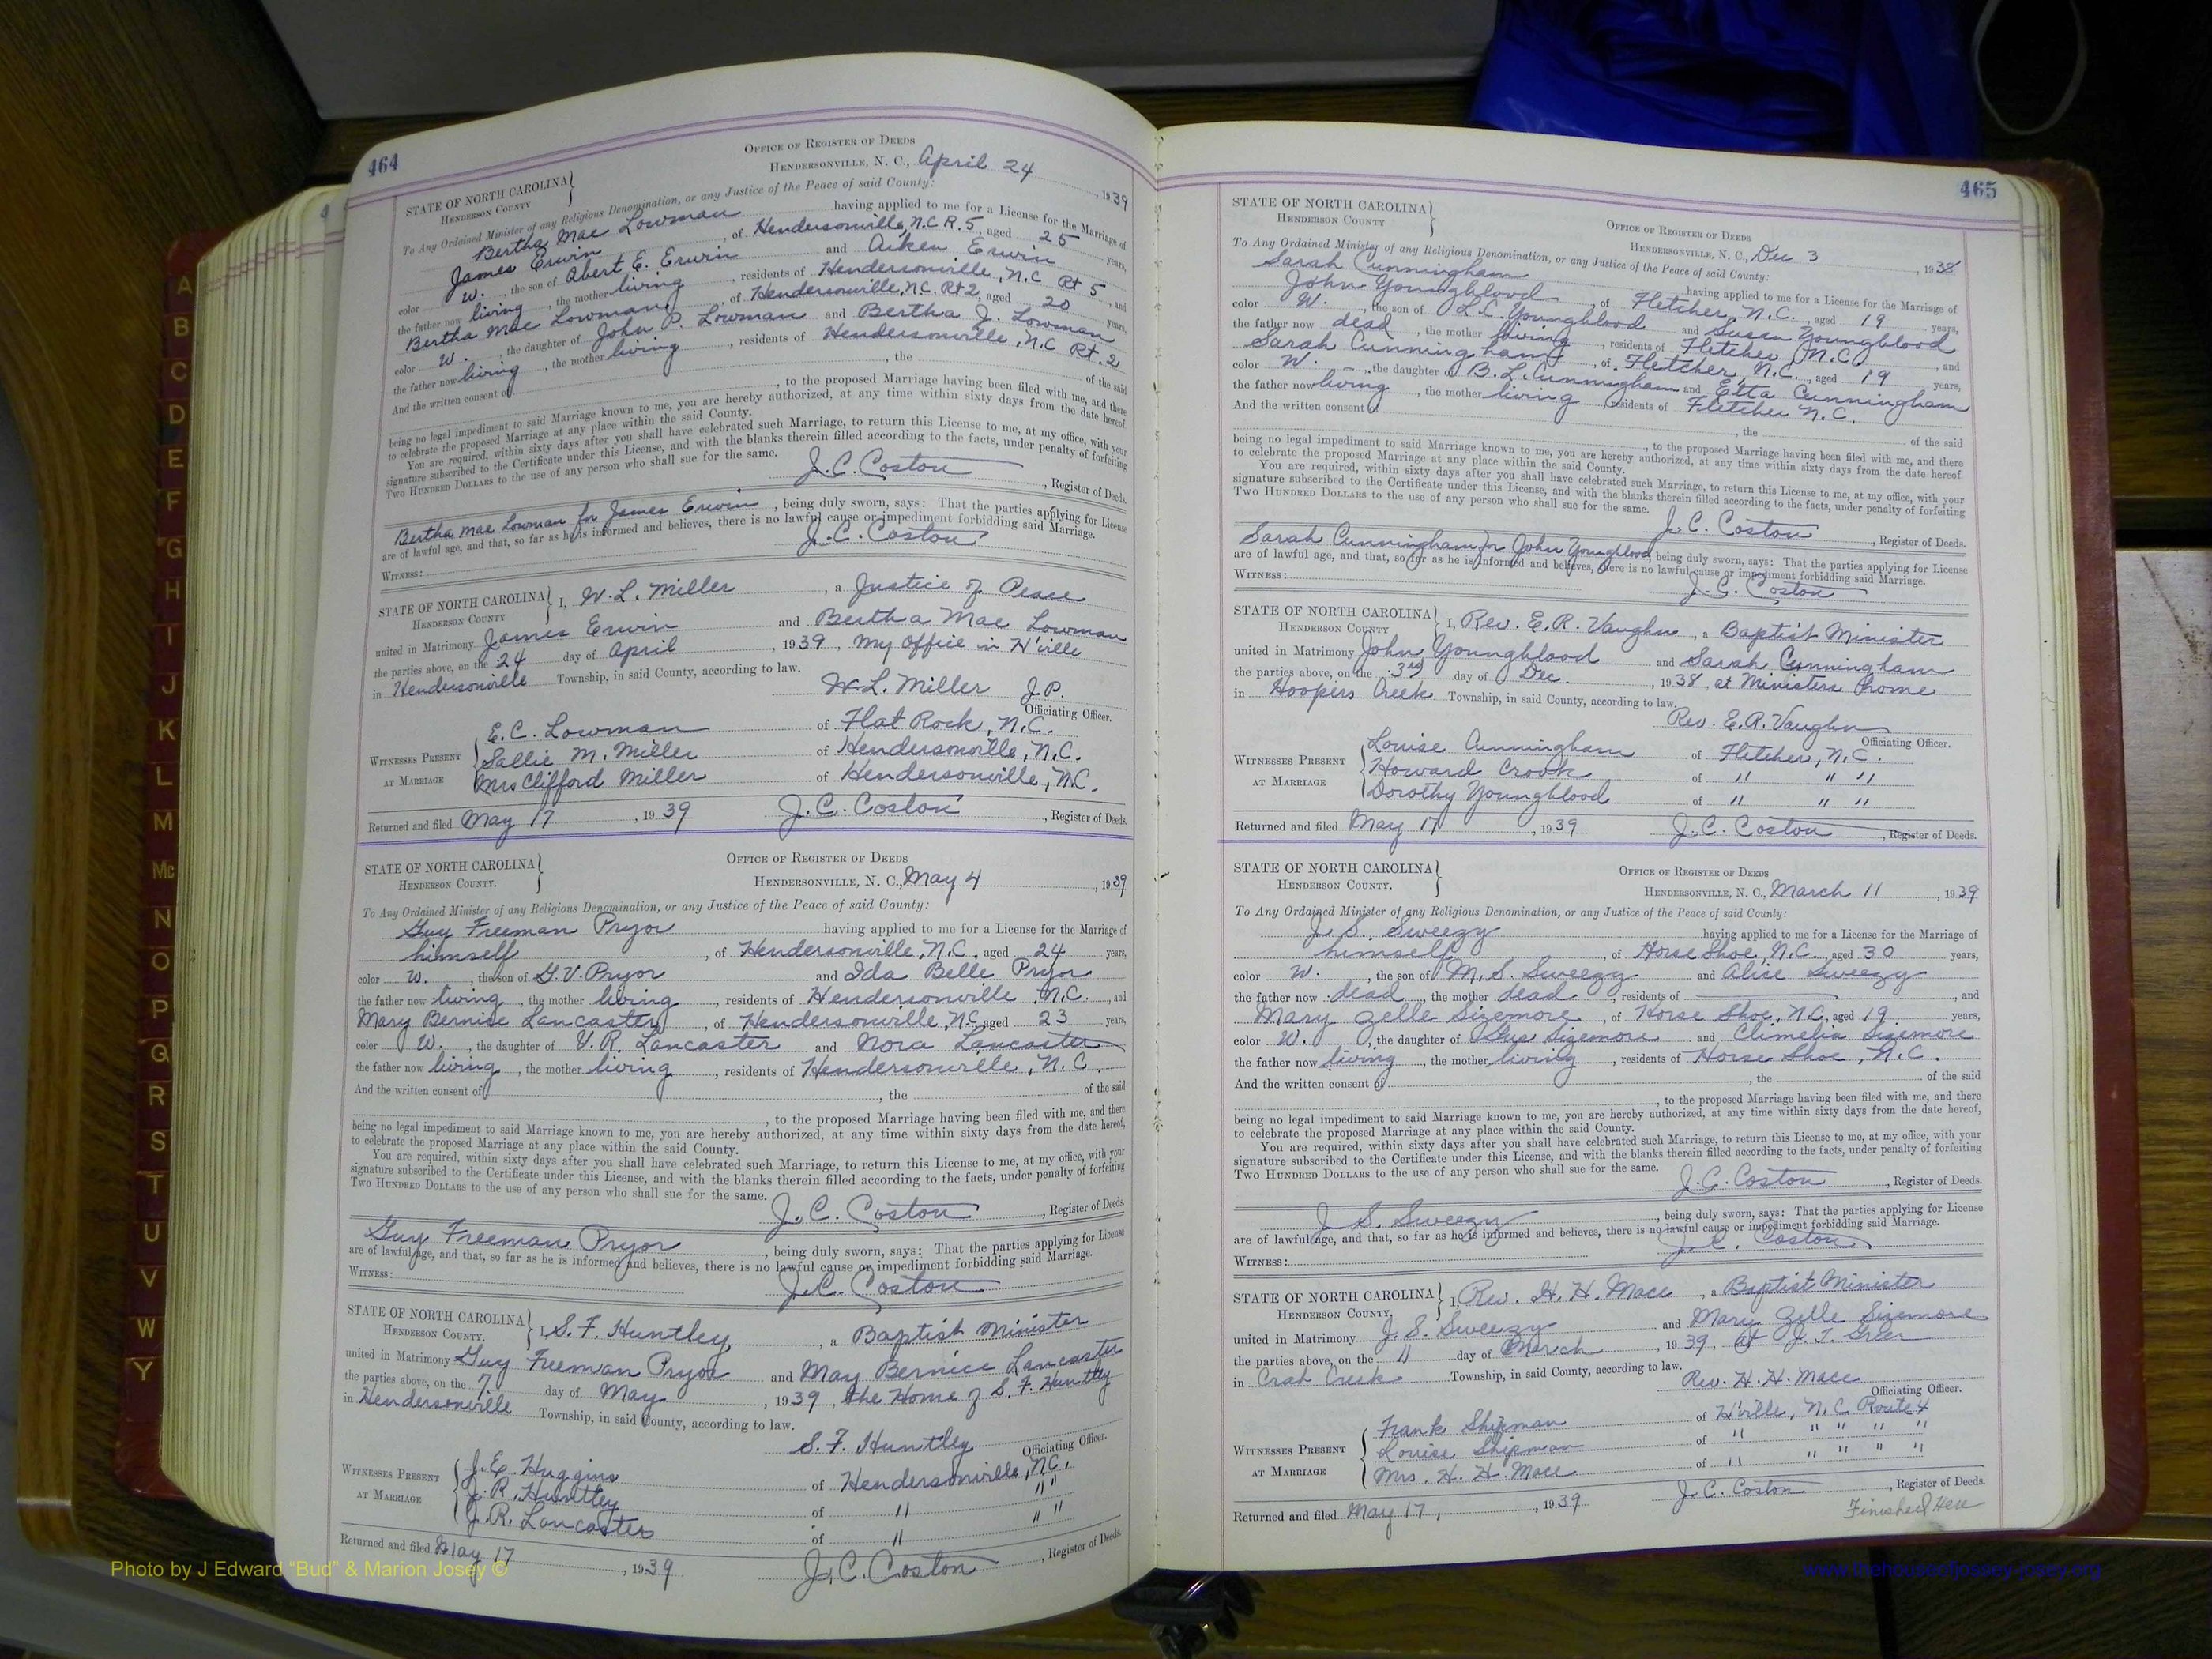 464
OFFICE OF REGISTER OF DEEDS
HENDERSONVILLE, N. C., April 24, 1939
STATE OF NORTH CAROLINA
HENDERSON COUNTY
To Any Ordained Minister of any Religious Denomination, or any Justice of the Peace of said County:
Bertha Mae Lowman having applied to me for a License for the Marriage of
James Erwin, of Hendersonville, N.C. R. 5, aged 25 years,
color W., the son of Abert E. Erwin and Aiken Erwin
the father now living, the mother living, residents of Hendersonville, N.C Rt 5, and
Bertha Mae Lowman, of Hendersonville, N.C. Rt 2, aged 20 years,
color W., the daughter of John P. Lowman and Bertha J. Lowman
the father now living, the mother living, residents of Hendersonville, N.C Rt. 2
And the written consent of , the of the said
, to the proposed Marriage having been filed with me, and there
being no legal impediment to said Marriage known to me, you are hereby authorized, at any time within sixty days from the date hereof
to celebrate the proposed Marriage at any place within the said County.
You are required, within sixty days after you shall have celebrated such Marriage, to return this License to me, at my office, with your
signature subscribed to the Certificate under this License, and with the blanks therein filled according to the facts, under penalty of forfeiting
TWO HUNDRED DOLLARS to the use of any person who shall sue for the same.
J. C. Coston, Register of Deeds.
Bertha Mae Lowman for James Erwin, being duly sworn, says: That the parties applying for License
are of lawful age, and that, so far as he is informed and believes, there is no lawful cause or impediment forbidding said Marriage.
WITNESS: J. C. Coston
STATE OF NORTH CAROLINA
HENDERSON COUNTY
I, W. L. Miller, a Justice of Peace
united in Matrimony James Erwin and Bertha Mae Lowman
the parties above, on the 24 day of April, 1939, My Office in H'ville
in Hendersonville Township, in said County, according to law.
W. L. Miller J.P.
Officiating Officer.
WITNESSES PRESENT AT MARRIAGE
E. C. Lowman of Flat Rock, N.C.
Sallie M. Miller of Hendersonville, N.C.
Mrs Clifford Miller of Hendersonville, N.C.
Returned and filed May 17, 1939 J. C. Coston, Register of Deeds.
STATE OF NORTH CAROLINA
HENDERSON COUNTY.
OFFICE OF REGISTER OF DEEDS
HENDERSONVILLE, N. C., May 4, 1939
To Any Ordained Minister of any Religious Denomination, or any Justice of the Peace of said County:
Guy Freeman Pryor having applied to me for a License for the Marriage of
himself, of Hendersonville, N.C., aged 24 years,
color W., the son of G. V. Pryor and Ida Belle Pryor
the father now living, the mother living, residents of Hendersonville, N.C., and
Mary Bernice Lancaster, of Hendersonville, N.C, aged 23 years,
color W., the daughter of V. R. Lancaster and Nora Lancaster
the father now living, the mother living, residents of Hendersonville, N.C.
And the written consent of , the of the said
, to the proposed Marriage having been filed with me, and there
being no legal impediment to said Marriage known to me, you are hereby authorized, at any time within sixty days from the date hereof,
to celebrate the proposed Marriage at any place within the said County.
You are required, within sixty days after you shall have celebrated such Marriage, to return this License to me, at my office, with your
signature subscribed to the Certificate under this License, and with the blanks therein filled according to the facts, under penalty of forfeiting
TWO HUNDRED DOLLARS to the use of any person who shall sue for the same.
J. C. Coston, Register of Deeds.
Guy Freeman Pryor, being duly sworn, says: That the parties applying for License
are of lawful age, and that, so far as he is informed and believes, there is no lawful cause or impediment forbidding said Marriage.
WITNESS: J. C. Coston
STATE OF NORTH CAROLINA
HENDERSON COUNTY.
I, S. F. Huntley, a Baptist Minister
united in Matrimony Guy Freeman Pryor and May Bernice Lancaster
the parties above, on the 7 day of May, 1939, the Home of S. F. Huntley
in Hendersonville Township, in said County, according to law.
S. F. Huntley
Officiating Officer.
WITNESSES PRESENT AT MARRIAGE
J. E. Huggins of Hendersonville, N.C.
J. R. Huntley of " " "
J. R. Lancaster of " " "
Returned and filed May 17, 1939 J. C. Coston, Register of Deeds.
465
STATE OF NORTH CAROLINA
HENDERSON COUNTY
OFFICE OF REGISTER OF DEEDS
HENDERSONVILLE, N. C., Dec 3, 1938
To Any Ordained Minister of any Religious Denomination, or any Justice of the Peace of said County:
Sarah Cunningham having applied to me for a License for the Marriage of
John Youngblood, of Fletcher, N.C., aged 19 years,
color W., the son of L. C. Youngblood and Susan Youngblood
the father now dead, the mother living, residents of Fletcher, N.C., and
Sarah Cunningham, of Fletcher, N.C., aged 19 years,
color W., the daughter of B. L. Cunningham and Etta Cunningham
the father now living, the mother living, residents of Fletcher N.C.
And the written consent of , the of the said
, to the proposed Marriage having been filed with me, and there
being no legal impediment to said Marriage known to me, you are hereby authorized, at any time within sixty days from the date hereof
to celebrate the proposed Marriage at any place within the said County.
You are required, within sixty days after you shall have celebrated such Marriage, to return this License to me, at my office, with your
signature subscribed to the Certificate under this License, and with the blanks therein filled according to the facts, under penalty of forfeiting
TWO HUNDRED DOLLARS to the use of any person who shall sue for the same.
J. C. Coston, Register of Deeds.
Sarah Cunningham for John Youngblood, being duly sworn, says: That the parties applying for License
are of lawful age, and that, so far as he is informed and believes, there is no lawful cause or impediment forbidding said Marriage.
WITNESS: J. C. Coston
STATE OF NORTH CAROLINA
HENDERSON COUNTY
I, Rev. E. R. Vaughn, a Baptist Minister
united in Matrimony John Youngblood and Sarah Cunningham
the parties above, on the 3rd day of Dec., 1938, at Ministers home
in Hoopers Creek Township, in said County, according to law.
Rev. E. R. Vaughn
Officiating Officer.
WITNESSES PRESENT AT MARRIAGE
Louise Cunningham of Fletcher, N.C.
Howard Crook of " " "
Dorothy Youngblood of " " "
Returned and filed May 17, 1939 J. C. Coston, Register of Deeds.
STATE OF NORTH CAROLINA
HENDERSON COUNTY.
OFFICE OF REGISTER OF DEEDS
HENDERSONVILLE, N. C., March 11, 1939
To Any Ordained Minister of any Religious Denomination, or any Justice of the Peace of said County:
J. S. Sweezy having applied to me for a License for the Marriage of
himself, of Horse Shoe, N.C., aged 30 years,
color W., the son of M. S. Sweezy and Alice Sweezy
the father now dead, the mother dead, residents of , and
Mary Zelle Sizemore, of Horse Shoe, N.C, aged 19 years,
color W., the daughter of Gus Sizemore and Climelia Sizemore
the father now living, the mother living, residents of Horse Shoe, N.C.
And the written consent of , the of the said
, to the proposed Marriage having been filed with me, and there
being no legal impediment to said Marriage known to me, you are hereby authorized, at any time within sixty days from the date hereof,
to celebrate the proposed Marriage at any place within the said County.
You are required, within sixty days after you shall have celebrated such Marriage, to return this License to me, at my office, with your
signature subscribed to the Certificate under this License, and with the blanks therein filled according to the facts, under penalty of forfeiting
TWO HUNDRED DOLLARS to the use of any person who shall sue for the same.
J. C. Coston, Register of Deeds.
J. S. Sweezy, being duly sworn, says: That the parties applying for License
are of lawful age, and that, so far as he is informed and believes, there is no lawful cause or impediment forbidding said Marriage.
WITNESS: J. C. Coston
STATE OF NORTH CAROLINA
HENDERSON COUNTY.
I, Rev. H. H. Mace, a Baptist Minister
united in Matrimony J. S. Sweezy and Mary Zelle Sizemore
the parties above, on the 11 day of March, 1939, at J. T. Greer
in Crab Creek Township, in said County, according to law.
Rev. H. H. Mace
Officiating Officer.
WITNESSES PRESENT AT MARRIAGE
Frank Shipman of H'ville, N.C. Route 4
Louise Shipman of " " " " "
Mrs. H. H. Mace of " " " " "
Returned and filed May 17, 1939 J. C. Coston, Register of Deeds.
Finished Here
A
B
C
D
E
F
G
H
I
J
K
L
M
Mc
N
O
P
Q
R
S
T
U
V
W
Y
Photo by J Edward "Bud" & Marion Josey ©
www.thehouseofjossey-josey.org